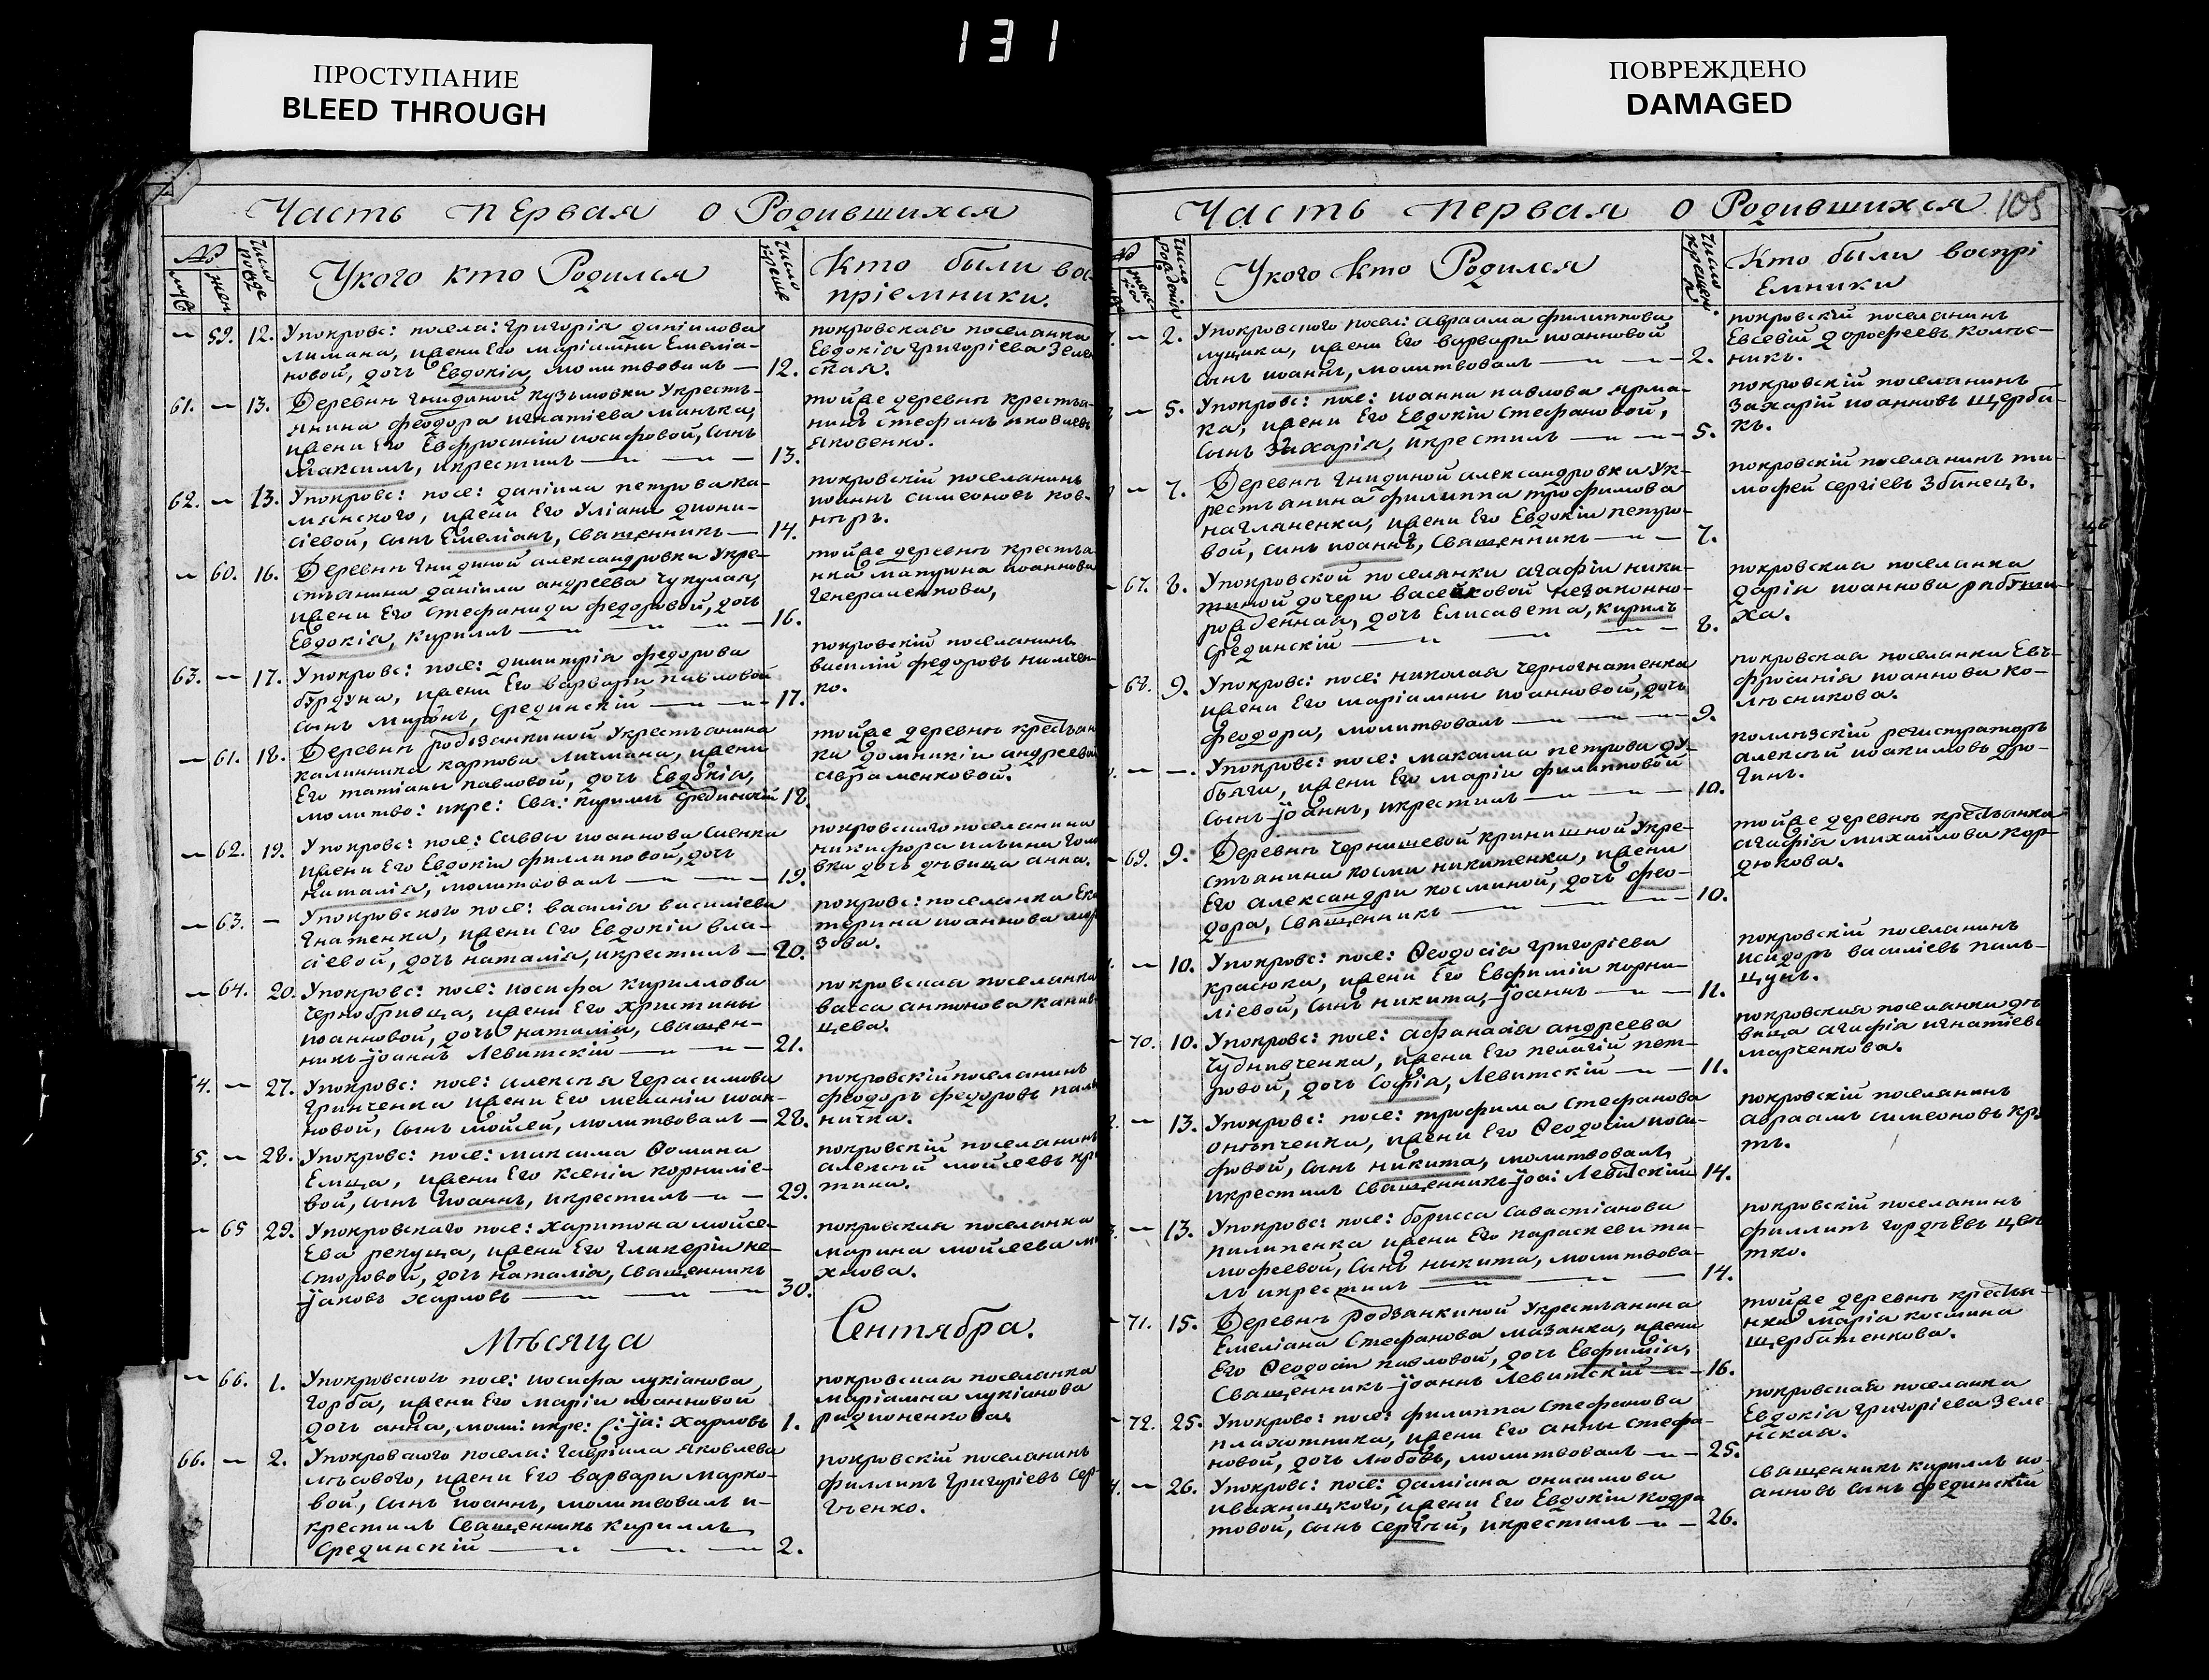 131
ПРОСТУПАНИЕ
BLEED THROUGH
ПОВРЕЖДЕНО
DAMAGED
Часть первая о Родившихся
№
муж
жен
число рожде
Укого кто Родился
число креще
Кто были вос
пріемники.
— 59. 12. Упокровс: посела: григорія даніилова
лимана, ижени Его маріамны Емеліа-
новой, дочь Евдокіа, молитвовалъ — 12.
покровская поселанка
Евдокіа григоріева Зелен
ская.
61. — 13. Деревни гнидиной кузьмовки Укресть-
янина феодора игнатіева манька,
ижени Его Евфросиніи иосифовой, сынъ
Максимъ, икрестилъ — 13.
тойже деревни кресть
нинъ стефанъ иаковлевъ
яковенко.
62. — 13. Упокровс: посе: даніила петрова ка-
мянского, ижени Его Уліаны диони-
сіевой, сынъ Емеліанъ, Священникъ — 14.
покровскій поселанинъ
иоаннъ симеоновъ ков-
нѣръ.
— 60. 16. Деревни гнидиной александровки Укре-
стьянина даніила андреева чукумак,
ижени Его Стефаниды федоровой, дочь
Евдокіа, кириллъ — 16.
тойже деревни крестьа
нка матрона иоаннова
генераленкова,
63. — 17. Упокровс: посе: димитріа федорова
бурдуна, ижени Его варвары павловой
сынъ миронъ, срединскій — 17.
покровскій поселанинъ
василій федоровъ
ко.
— 61. 18. Деревни Родозанкиной Укрестьанина
калинника карпова личмана, ижени
Его татіаны павловой, дочь Евдокіа,
молитво: икре: Свя: кириллъ срединскій 18.
тойже деревни крестьан
ка домникіа андреева
авраменковой.
— 62. 19. Упокровс: посе: Саввы иоаннова Саенка
ижени Его Евдокіи филлиповой, дочь
наталіа, молитвовалъ — 19.
покровского поселанина
никифора ильина голо
вка дочь дѣвица анна.
— 63. — Упокровского посе: василіа василіева
гнатенка, ижени Его Евдокіи вла-
сіевой, дочь наталіа, икрестилъ — 20.
покровс: поселанка Ека
терина иоаннова
зова.
— 64. 20. Упокровс: посе: иосифа кириллова
чернобривца, ижени Его христины
иоанновой, дочь наталіа, священ-
никъ іоаннъ Левитскій — 21.
покровская поселанка
васса антонова канив
цева.
4. — 27. Упокровс: посе: алексѣя герасимова
гринченка ижени Его меланіи иоан-
новой, сынъ мойсей, молитвовалъ — 28.
покровскій поселанинъ
феодоръ федоровъ пала
ничка.
5. — 28. Упокровс: посе: максима Ѳомина
Емца, ижени Его Ксеніи корниліе-
вой, сынъ иоаннъ, икрестилъ — 29.
покровскій поселанинъ
алексѣй мойсеевъ
тина.
— 65 29. Упокровскаго посе: харитона мойсе-
Ева репуща, ижени Его гликеріи не-
сторовой, дочь наталіа, Священникъ
іаковъ харловъ — 30.
покровская поселанка
марина мойсеева
хнова.
Мѣсяца Сентября.
— 66. 1. Упокровского посе: иосифа лукіанова
горба, ижени Его маріи иоанновой
дочь анна, моли: икре: С: іа: харловъ 1.
покровская поселанка
маріамна лукіанова
радионенкова
66. — 2. Упокровского посела: гавріила яковлева
лѣсового, ижени Его варвары марко-
вой, сынъ иоаннъ, молитвовалъ и-
крестилъ Священникъ кириллъ
Срединскій — 2.
покровскій поселанинъ
филлипъ григоріевъ сер-
гѣенко.
Часть первая о Родившихся.
105
№
женс-ка
число рожденія
Укого кто Родился
число крещені
Кто были воспрі
Емники
— 2. Упокровского посел: авраама филиппова
луцика, ижени Его варвары иоанновой
сынъ иоаннъ, молитвовалъ — 2.
покровскій поселанинъ
Евсевій дорофеевъ колес-
никъ.
— 5. Упокровс: посе: иоанна павлова ярма-
ка, ижени Его Евдокіи стефановой,
сынъ Захаріа, икрестилъ — 5.
покровскій поселанинъ
Захарій иоанновъ щерба-
къ.
— 7. Деревни гнидиной александровки Ук-
рестьанина филиппа трофимова
нагляненки, ижени Его Евдокіи петро-
вой, сынъ иоаннъ, Священникъ — 7.
покровскій поселанинъ ти-
мофей сергіевъ збинецъ.
— 67. 8. Упокровской поселянки агафіи ники-
тиной дочери васейковой незаконно-
рожденная, дочь Елисавета, кирилъ
Срединскій — 8.
покровская поселанка
дарія иоаннова
ха.
— 68. 9. Упокровс: посе: николая черногнатенка
ижени Его маріамны иоанновой, дочь
феодора, молитвовалъ — 9.
покровская поселанка Евъ-
фросиніа иоаннова ко-
лѣсникова.
— —. Упокровс: посе: максима петрова ду-
бьяги, ижени Его маріи филипповой
сынъ іоаннъ, икрестилъ — 10.
коллѣзскій регистраторъ
алексѣй иоакимовъ дро-
гинъ.
— 69. 9. Деревни чернишевой кринишной Укре-
стьанина косми никитенка, ижени
Его александри косминой, дочь фео-
дора, Священникъ — 10.
тойже деревни крестьанка
агафіа михайлова кор-
дюкова.
— 10. Упокровс: посе: Ѳеодосіа григоріева
красюка, ижени Его Евфиміи корни-
ліевой, сынъ никита, іоаннъ — 11.
покровскій поселанинъ
исидоръ василіевъ паль-
цунъ.
— 70. 10. Упокровс: посе: афанасіа андреева
чуднивченка, ижени Его пелагіи пет-
ровой, дочь Софіа, Левитскій — 11.
покровская поселанка дѣ
вица агафіа игнатіева
марченкова.
— 13. Упокровс: посе: трофима стефанова
онѣпченка, ижени Его Ѳеодосіи иоси-
фовой, сынъ никита, молитвовалъ,
икрестилъ Священникъ іоа: Левитскій 14.
покровскій поселанинъ
авраамъ симеоновъ кро
тъ.
— 13. Упокровс: посе: борисса савастіанова
пилипенка ижени Его параскеви ти-
мофеевой, сынъ никита, молитвова-
лъ икрестилъ — 14.
покровскій поселанинъ
филлипъ гордѣевъ цвѣ
тко.
— 71. 15. Деревни Родзанкиной Укрестьанина
Емеліана Стефанова мазанка, ижени
Его Ѳеодосіи павловой, дочь Евфиміа,
Священникъ іоаннъ Левитскій — 16.
тойже деревни крестьа-
нка маріа космина
щербатенкова.
— 72. 25. Упокровс: посе: филиппа Стефанова
плахотника, ижени Его анны стефа-
новой, дочь Любовь, молитвовалъ — 25.
покровская поселанка
Евдокіа григоріева зеле-
нская.
4. — 26. Упокровс: посе: даміана онисимова
ивахницкого, ижени Его Евдокіи кодра
товой, сынъ сергѣй, икрестилъ — 26.
священникъ кириллъ ио-
анновъ сынъ срединскій